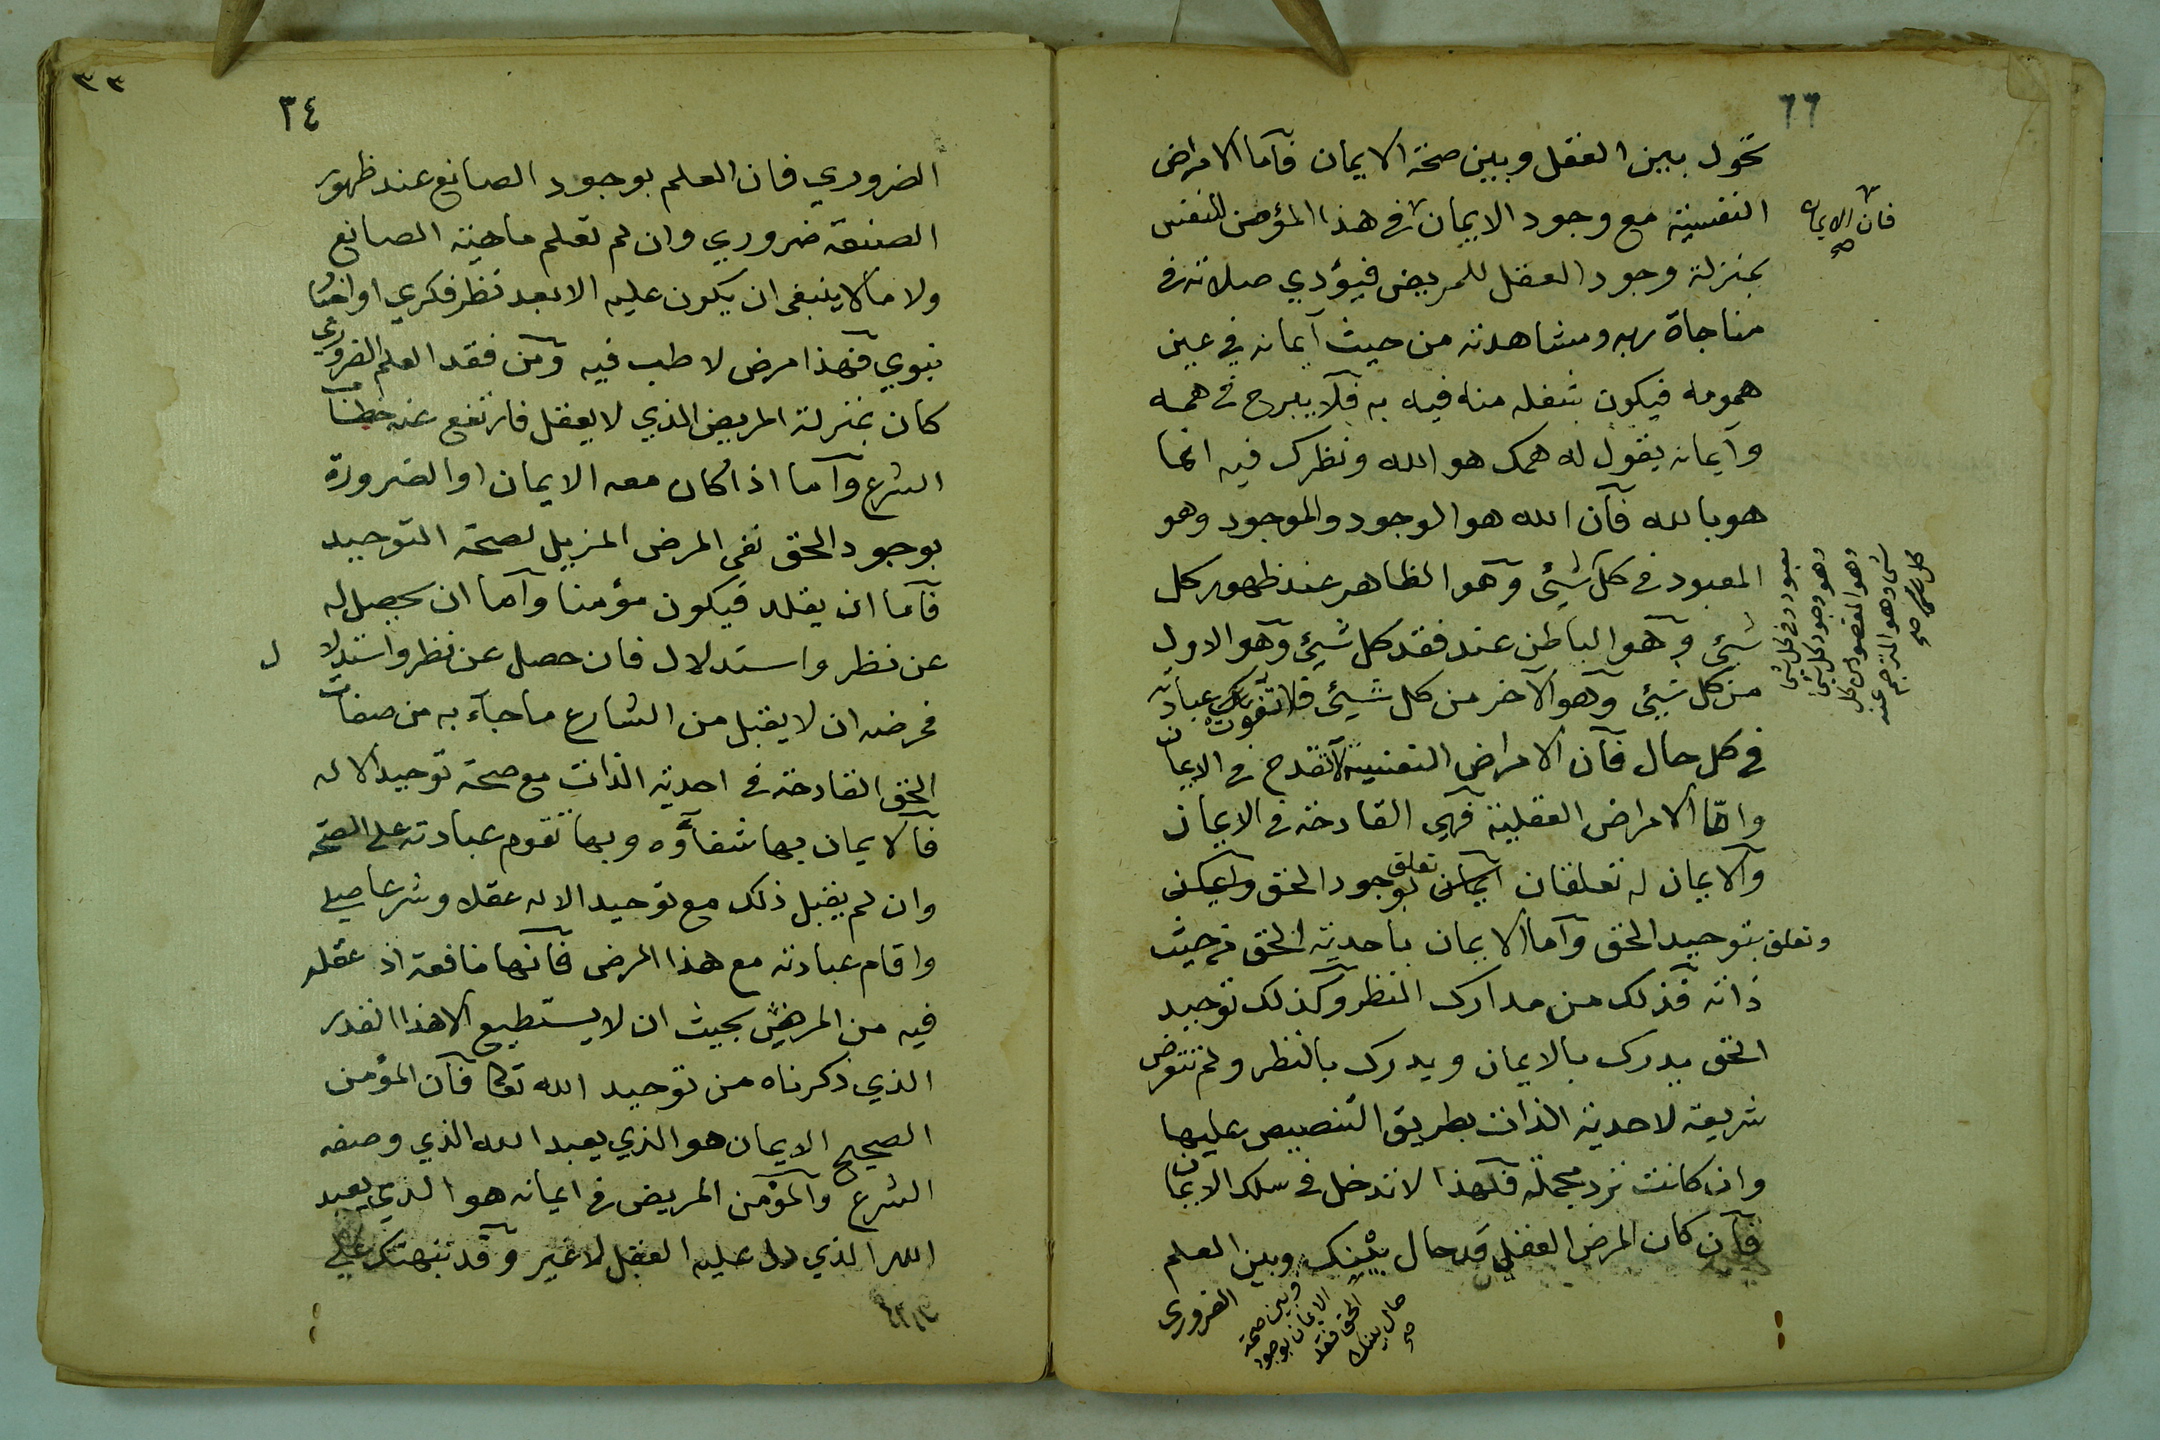 ٦٦
تحول بين العقل وبين صحة الايمان فاما الامراض
النفسية مع وجود الايمان في هذا المؤمن للنفس
فان الايمان صح
بمنزلة وجود العقل للمريض فيؤدي صلاته في
مناجاة ربه ومشاهدته من حيث ايمانه في عين
همومه فيكون شغله منه فيه به فلا يبرح في همه
وايمانه يقول له همك هو الله ونظرك فيه انما
هو بالله فان الله هو الوجود والموجود وهو
المعبود في كل شيئ وهو الظاهر عند ظهور كل
شيئ وهو الباطن عند فقد كل شيئ وهو الاول
من كل شيئ وهو الآخر من كل شيئ فلا تفوتك عبادته
معبود وفي كل شئ
وهو وجود كل شئ
وهو المقصود من كل
شئ وهو المترجم عنه
كل شئ صح
في كل حال فان الامراض النفسية لا تقدح في الايمان
واما الامراض العقلية فهي القادحة في الايمان
والايمان له تعلقان تعلق بوجود الحق
وتعلق بتوحيد الحق واما الايمان باحدية الحق من حيث
ذاته فذلك من مدارك النظر وكذلك توحيد
الحق يدرك بالايمان ويدرك بالنظر ولم تتعرض
شريعة لاحدية الذات بطريق التنصيص عليها
وان كانت ترد مجملة فلهذا لا تدخل في سلك الايمان
فان كان المرض العقلي قد حال بينك وبين العلم
الضروري
وبين صحة
الايمان بوجود
الحق فقد
حال بينك
صح
٣٣
٣٤
الضروري فان العلم بوجود الصانع عند ظهور
الصنعة ضروري وان لم تعلم ماهية الصانع
ولا ما لا ينبغي ان يكون عليه الا بعد نظر فكري او اخبار
نبوي فهذا مرض لا طب فيه ومن فقد العلم الضروري
كان بمنزلة المريض الذي لا يعقل فارتفع عنه خطاب
الشرع واما اذا كان معه الايمان او الضرورة
بوجود الحق نفي المرض المزيل لصحة التوحيد
فاما ان يقلد فيكون مؤمنا واما ان يحصل له
عن نظر واستدلال فان حصل عن نظر واستدلال
فمرضه ان لا يقبل من الشارع ما جآء به من صفات
الحق القادحة في احدية الذات مع صحة توحيد الاله
فالايمان بها شفآؤه وبها تقوم عبادته على الصحة
وان لم يقبل ذلك مع توحيد الاله عقلا وشرعا صلى
واقام عبادته مع هذا المرض فانها نافعة اذ عقله
فيه من المرض بحيث ان لا يستطيع الا هذا القدر
الذي ذكرناه من توحيد الله تعالى فان المؤمن
الصحيح الايمان هو الذي يعبد الله الذي وصفه
الشرع والمؤمن المريض في ايمانه هو الذي يعبد
الله الذي دل عليه العقل لا غير وقد نبهتك على